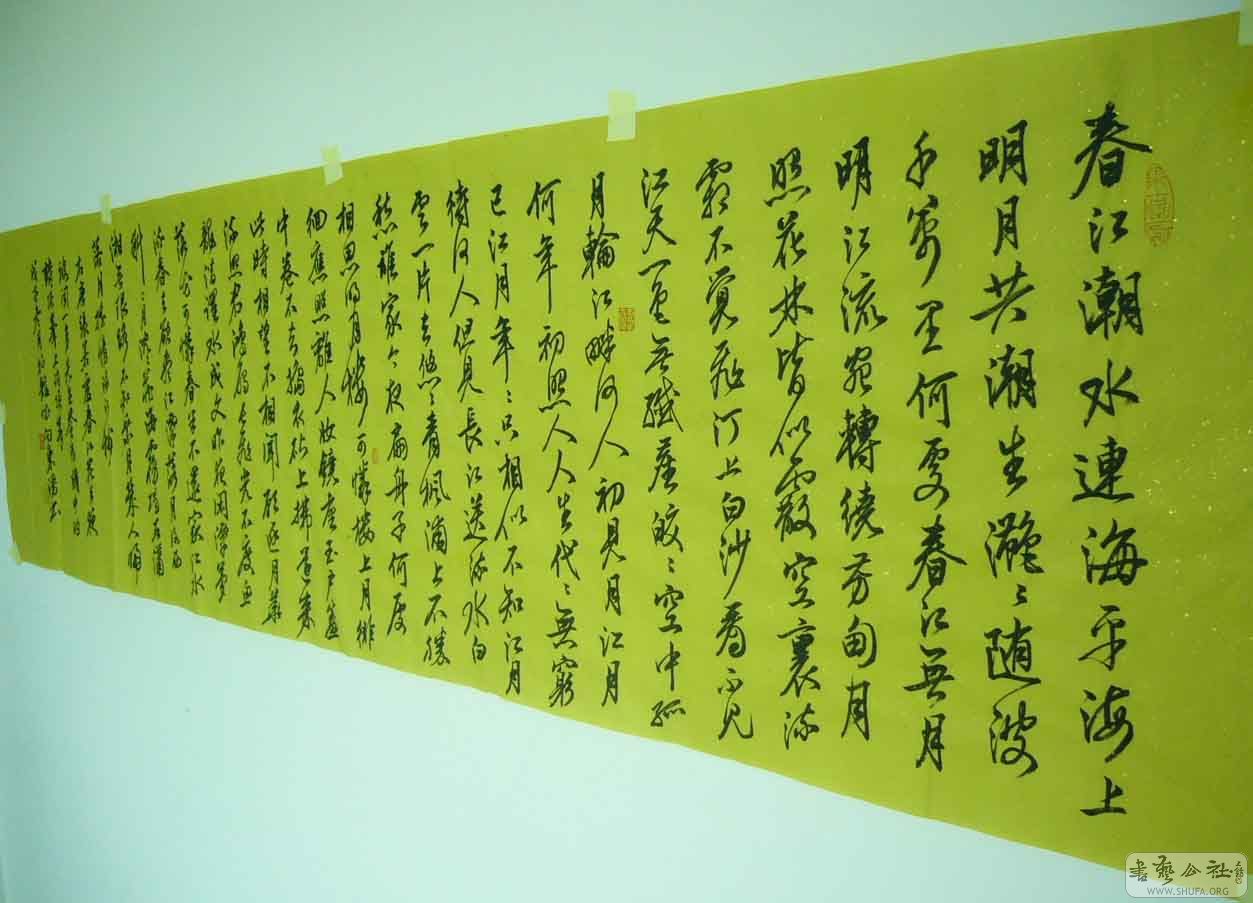 春江潮水連海平海上
明月共潮生灧〻随波
千萬里何處春江無月
明江流宛轉繞芳甸月
照花林皆似霰空裏流
霜不覺飛汀上白沙看不見
江天一色無纖塵皎〻空中孤
月輪江畔何人初見月江月
何年初照人人生代〻無窮
已江月年〻只相似不知江月
待何人但見長江送流水白
雲一片去悠〻青楓浦上不勝
愁誰家今夜扁舟子何處
相思明月樓可憐樓上月徘
徊應照離人妝鏡臺玉戶簾
中卷不去搗衣砧上拂還來
此時相望不相聞願逐月華
流照君鴻雁長飛光不度魚
龍潛躍水成文昨夜閑潭夢
落花可憐春半不還家江水
流春去欲盡江潭落月復西
斜〻月沉〻藏海霧碣石瀟
湘無限路不知乘月幾人歸
落月搖情滿江樹
右唐張若虛春江花月夜
書藝公社
WWW.SHUFA.ORG